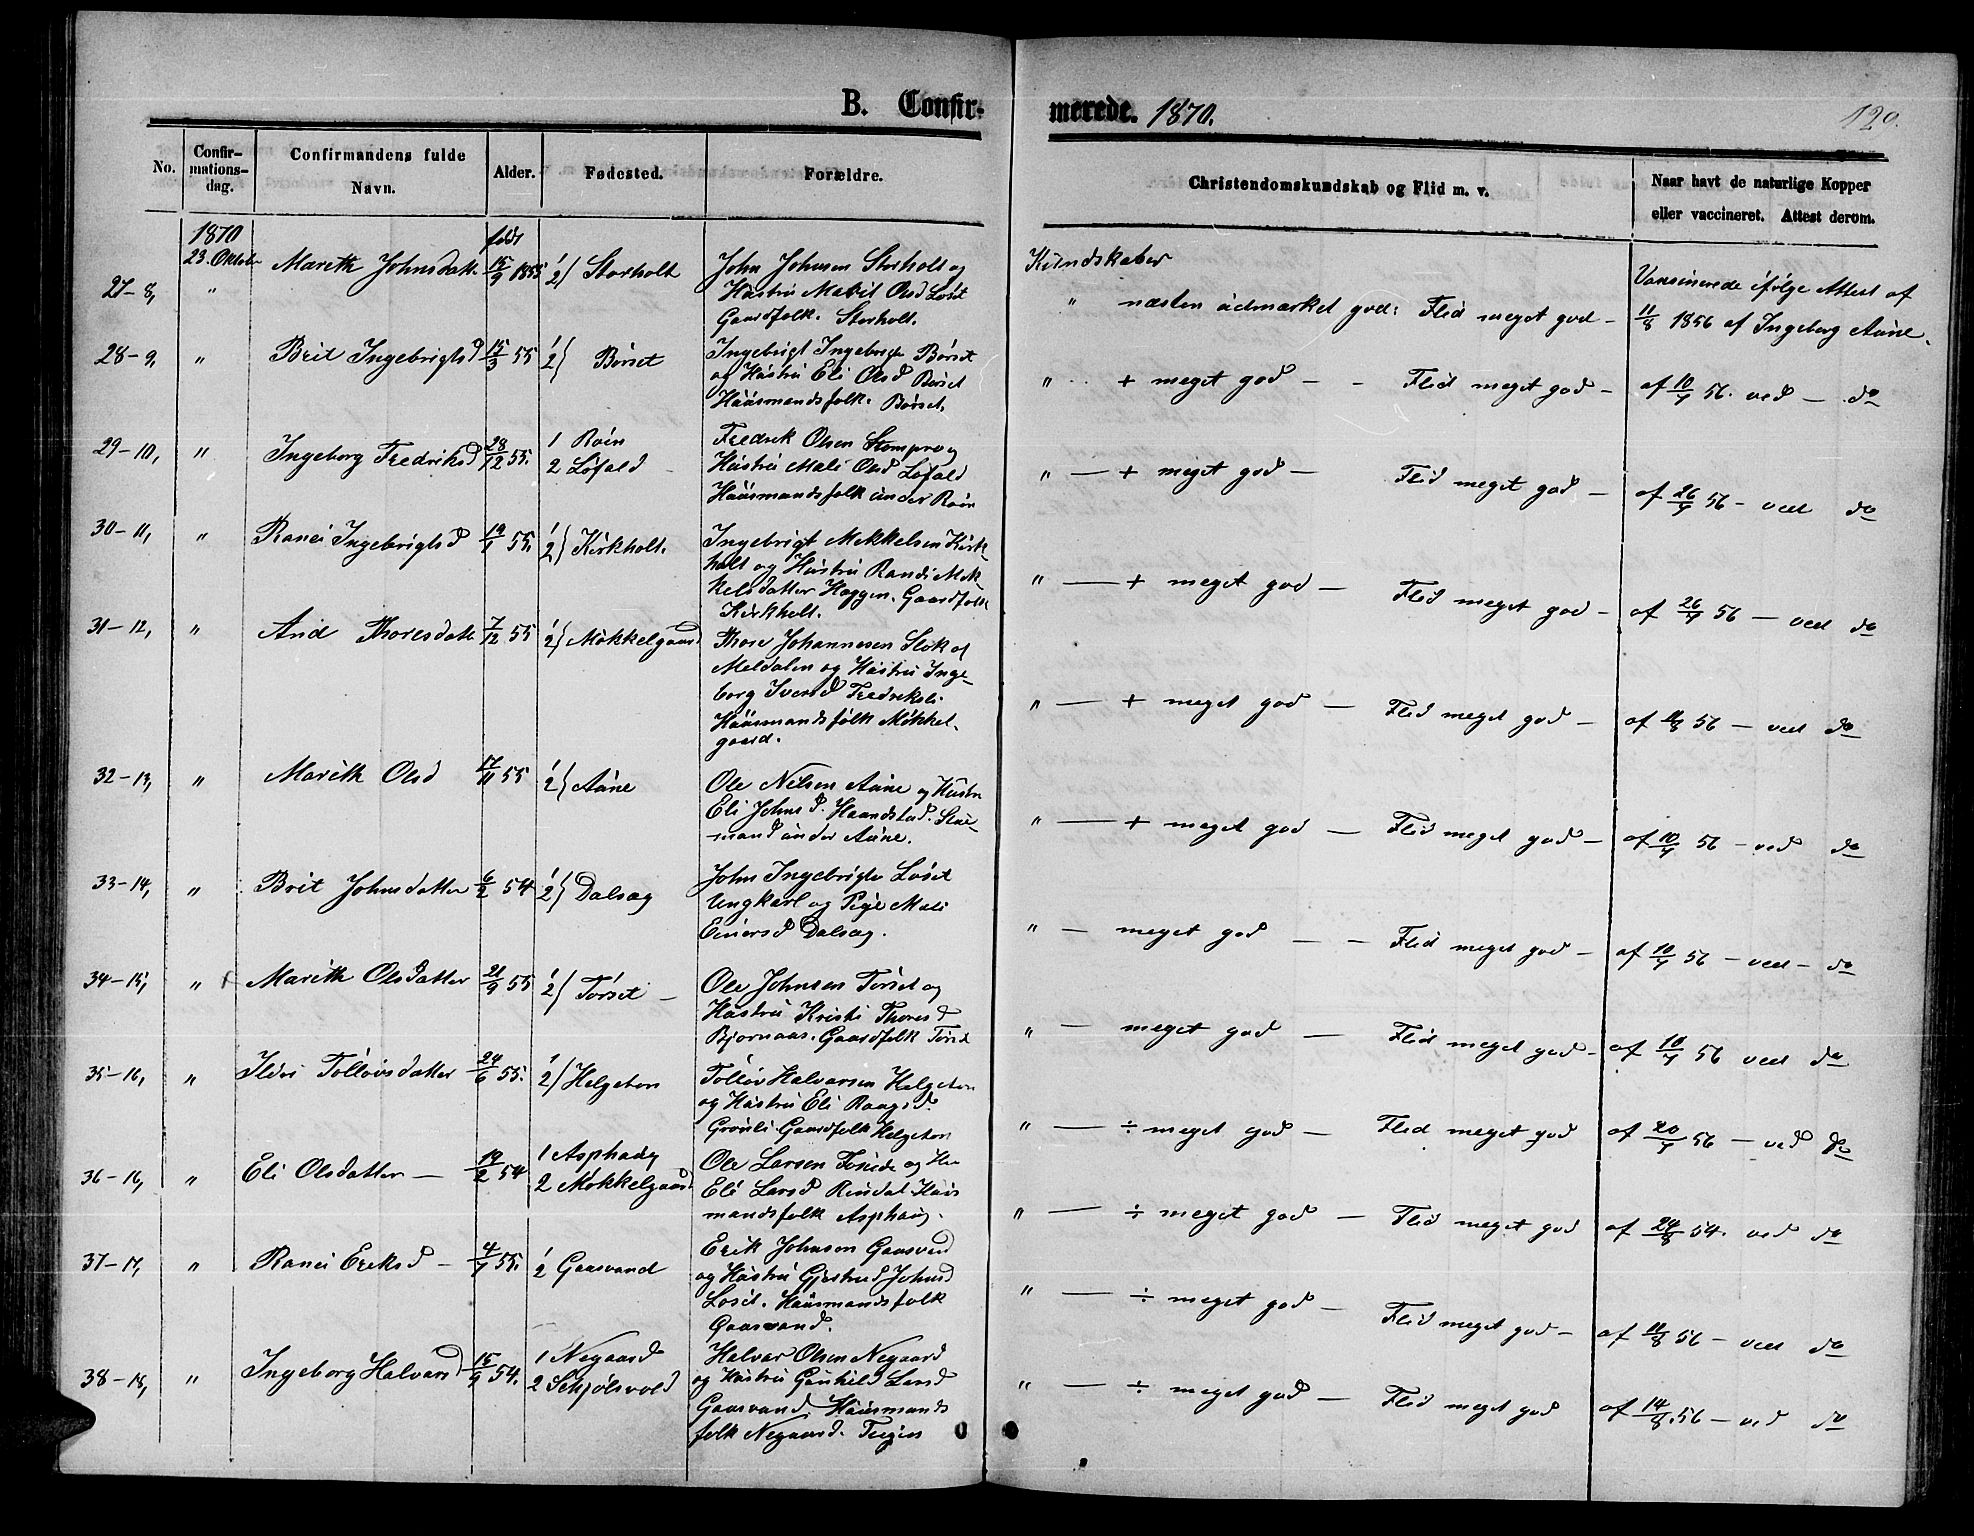 B. Confir-
merede. 1870.
129.
No.
Confir-
mations-
dag.
Confirmandens fulde
Navn.
Alder.
Fødested.
Forældre.
Christendomskundskab og Flid m. v.
Naar havt de naturlige Kopper
eller vaccineret. Attest derom.
1870
født
27-8, 23. Oktob. Marith Johnsdatt. 15/9 1855 1/2) Storholt
John Johnsen Storholt og
Hustru Marit Olsd Løset
Gaardfolk. Storholt.
Kundskaber
" næsten udmærket god: Flid meget god -
Vaccinerede ifølge Attest af
11/8 1856 af Ingeborg Aune.
28-9, " Brit Ingebrigtsd 15/3 55 1/2} Børset
Ingebrigt Ingebrigts Børset
og Hustru Eli Olsd Børset
Huusmandsfolk. Børset.
" + meget god - - Flid meget god - af 10/7 56. ved - do
29-10, " Ingeborg Fredriksd 28/12 55. 1 Røen
2 Løfald -
Fredrik Olsen Stompro og
Hustru Mali Olsd Løfald
Huusmandsfolk under Røen
" - + meget god - Flid meget god - af 26/7 56 - ved do
30-11, " Ranei Ingebrigtsd 19/1 55. 1/2) Kirkholt.
Ingebrigt Mikkelsen Kirk-
holt og Hustru Randi Mik-
kelsdatter Haggen. Gaardfolk
Kirkholt.
" - + meget god - Flid meget god - af 26/7 56 - ved do
31-12, " Thoresdatt. 7/12 55 1/2} Mokkelgaard
Thore Johannesen Slok af
Meldalen og Hustru Inge-
borg Iversd Fredriksli
Huusmandsfolk Mokkel-
gaard.
" - + meget god - Flid meget god - af 11/8 56 - ved do
32-13, " Marith Olsd 17/11 55 1/2} Aune
Ole Nilsen Aune og Hustru
Eli Johnsd. Haanstad.
mand under Aune.
" - + meget god - Flid meget god - af 10/7 56 - ved do
33-14, " Brit Johnsdatter 6/2 54 1/2} Dalsæg
John Ingebrigts Løset
Ungkarl og Pige Mali
Einersd Dalsæg.
" - meget god - - Flid meget god - af 10/7 56 - ved - do
34-15, " Marith Olsdatter 21/9 55 1/2} Torset -
Ole Johnsen Torset og
Hustru Kristi Thoresd
Bjørnaas. Gaardfolk Torset
" - meget god - Flid meget god - af 10/7 56 ved do
35-16, " Ildri Tolløvsdatter 24/6 55. 1/2) Helgeton
Tolløv Halvarsen Helgeton
og Hustru Eli Roaqsd.
Grønli. Gaardfolk Helgeton
" - ÷ meget god - Flid meget god af 20/7 56 - ved do
36-16, " Eli Olsdatter - 19/2 54 1 Asphaug
2 Mokkelgaard
Ole Larsen og Hu
Eli Larsd Rindal. Huus
mandsfolk Asphaug.
" - ÷ meget god - Flid meget god af 24/8 54. ved do
37-17, " Ranei Eriksd - 4/7 55. 1/2 Gaasvand
Erik Johnsen Gaasvand
og Hustru Gjertrud Johnsd
Løset. Huusmandsfolk
Gaasvand.
" - ÷ meget god - Flid meget god - af 11/8 56 - ved do
38-18, " Ingeborg Halvarsd 15/9 54. 1 Negaard
2 Schjølsvold
Halvar Olsen Negaard
og Hustru Gunhild Larsd
Gaasvand. Huusmands
folk Negaard.
" - ÷ meget god - Flid meget god af 14/8 56 - ved do